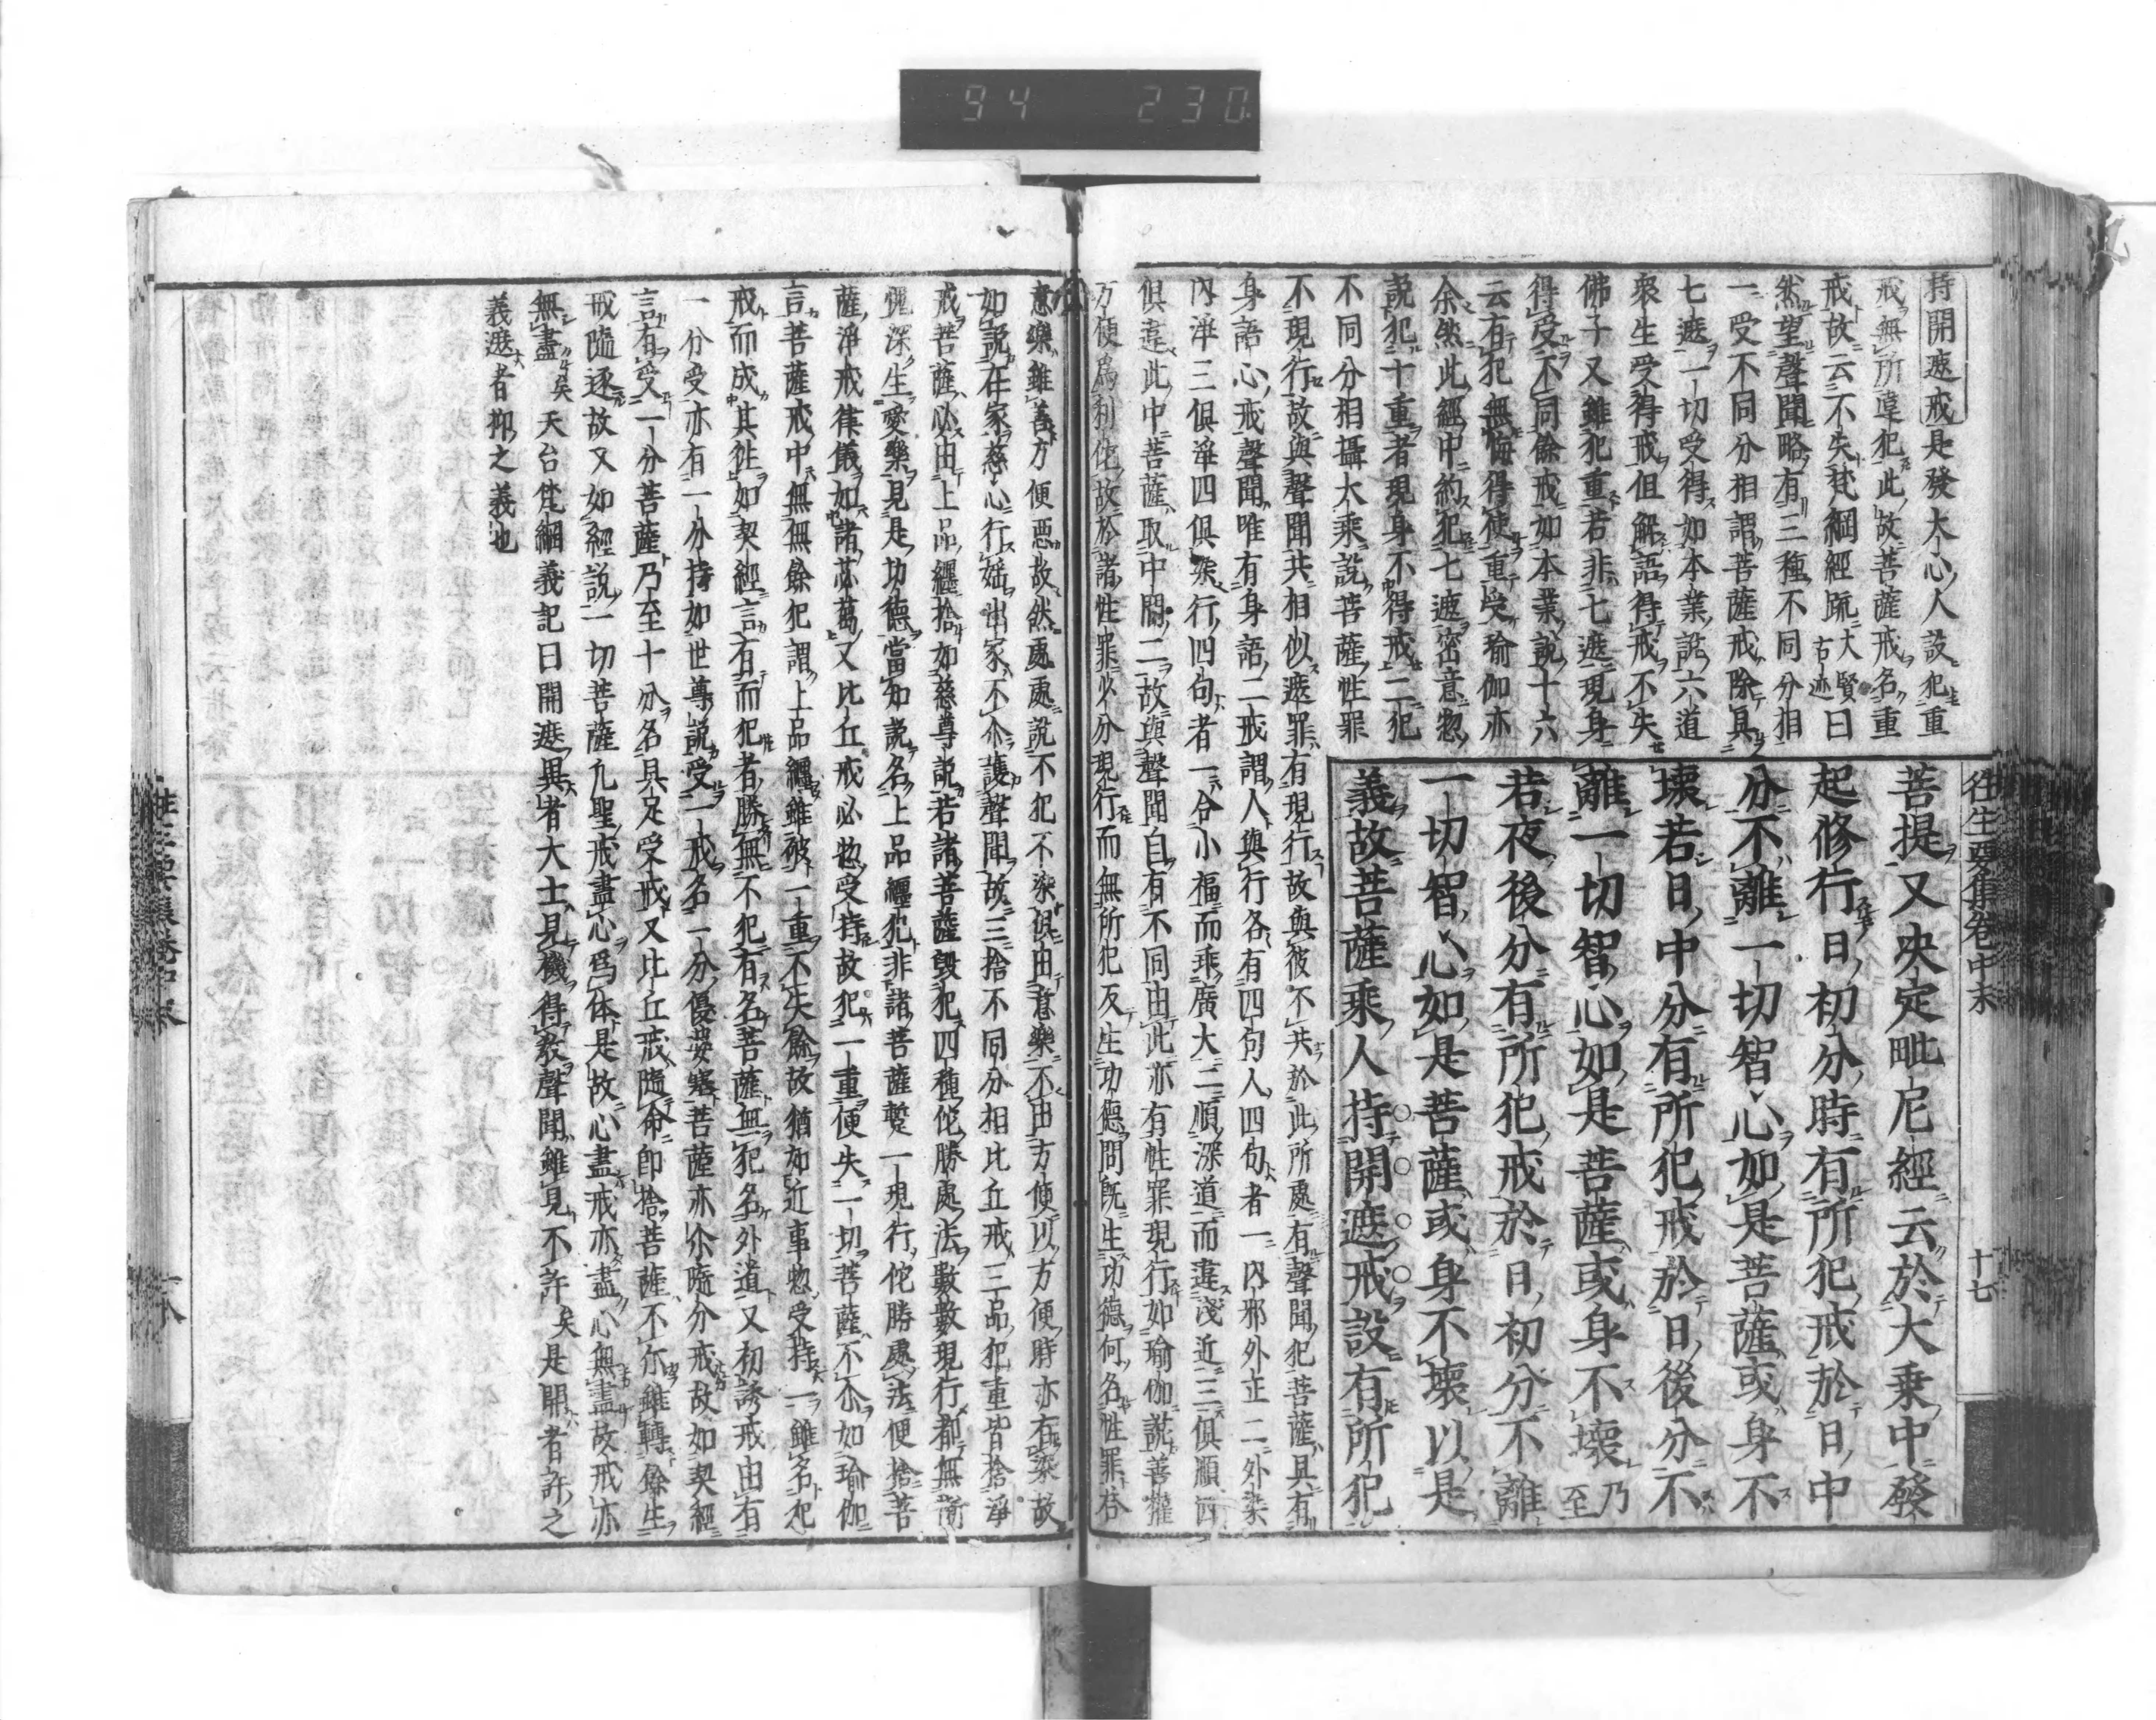 94 230
往生要集卷中末
十七
菩提又決定毗尼經云於大乘中發
起修行日初分時有所犯戒於日中
分不離一切智心如是菩薩戒身不
壞若日中分有所犯戒於日後分不
離一切智心如是菩薩戒身不壞乃至
若夜後分有所犯戒於日初分不離
一切智心如是菩薩戒身不壞以是
義故菩薩乘人持開遮戒設有所犯
持開遮戒是發大心人設犯重
戒無所違犯此故菩薩戒名重
戒故云不失梵網經疏大賢古迹曰
然望聲聞略有三種不同分相
一受不同分相謂菩薩戒除具
七遮一切受得如本業說六道
衆生受得戒但解語得戒不失
佛子又雖犯重若非七遮現身
得受不同餘戒如本業說十六
云有犯無悔得使重受瑜伽亦
余然此經中約犯七遮密意惣
說犯十重者現身不得戒二犯
不同分相攝大乘說菩薩性罪
不現行故與聲聞共相似遮罪有現行故與彼不共於此所處有聲聞犯菩薩具有
身語心戒聲聞唯有身語二戒謂人與行各有四句人四句者一內邪外正二外染
內淨三俱淨四俱染行四句者一合小福而乖廣大二順深道而違淺近三俱順四
俱違此中菩薩取中間二故與聲聞自有不同由此亦有性罪現行如瑜伽說善權
方便爲利佗故於諸性罪少分現行而無所犯反生功德問既生功德何名性罪答
意樂雖善方便惡故然處處說不犯不染俱由意樂不由方便以方便時亦在染故
如說在家慈心行婬出家不介護聲聞故三捨不同分相比丘戒三品犯重皆捨淨
戒菩薩必由上品纒捨如慈尊說若諸菩薩毀犯四種佗勝處法數數現行都無慚
愧深生愛樂見是功德當知說名上品纒犯非諸菩薩蹔一現行佗勝處法便捨菩
薩淨戒律儀如諸苾蒭又比丘戒必惣受持故犯一重便失一切菩薩不介如瑜伽
言菩薩戒中無無餘犯謂上品纒雖破一重不失餘故猶如近事惣受持一雖名犯
戒而成其徃如契經言有而犯者勝無不犯有名菩薩無犯名外道又初誘戒由有
一分受亦有一分持如世尊說受一戒名一分優婆塞菩薩亦介隨分戒故如契經
言有受一分菩薩乃至十分名具足受戒又比丘戒隨命即捨菩薩不尒雖轉餘生
戒隨逐故又如經說一切菩薩凡聖戒盡心爲体是故心盡戒亦盡心無盡故戒亦
無盡矣天台梵網義記曰開遮異者大士見機得殺聲聞雖見不許矣是開者許之
義遮者抑之義也
往生要集卷中末
十八